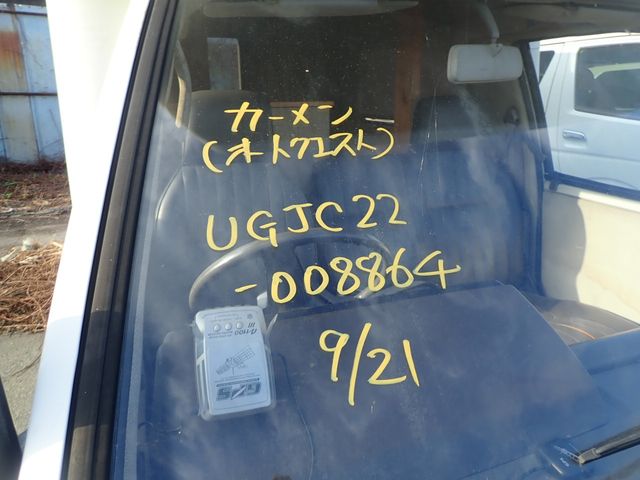 カーメン
(オートクエスト)
UGJC22
-008864
9/21